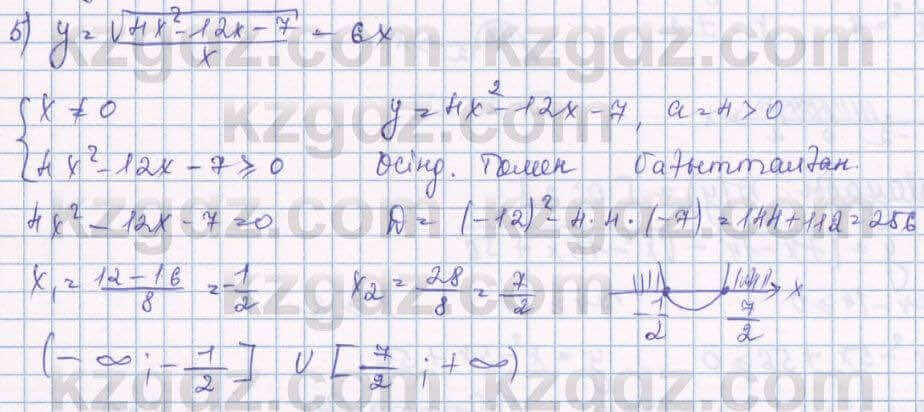 5) y = √(4x² - 12x - 7) / x - 6x
{ x ≠ 0     y = 4x² - 12x - 7, a = 4 > 0
4x² - 12x - 7 ⩾ 0     Өсінд. Төмен бағытталған.
4x² - 12x - 7 = 0     D = (-12)² - 4·4·(-7) = 144 + 112 = 256
x₁ = (12 - 16)/8 = -1/2     x₂ = 28/8 = 7/2     -1/2     7/2     x
(-∞; -1/2] ∪ [7/2; +∞)
kzgdz.com